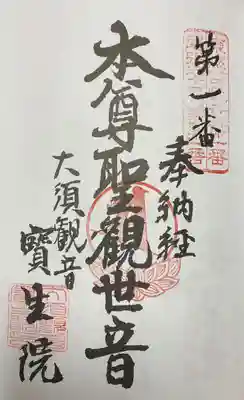 第一番
奉納経
本尊聖觀世音
大須観音
寳生院